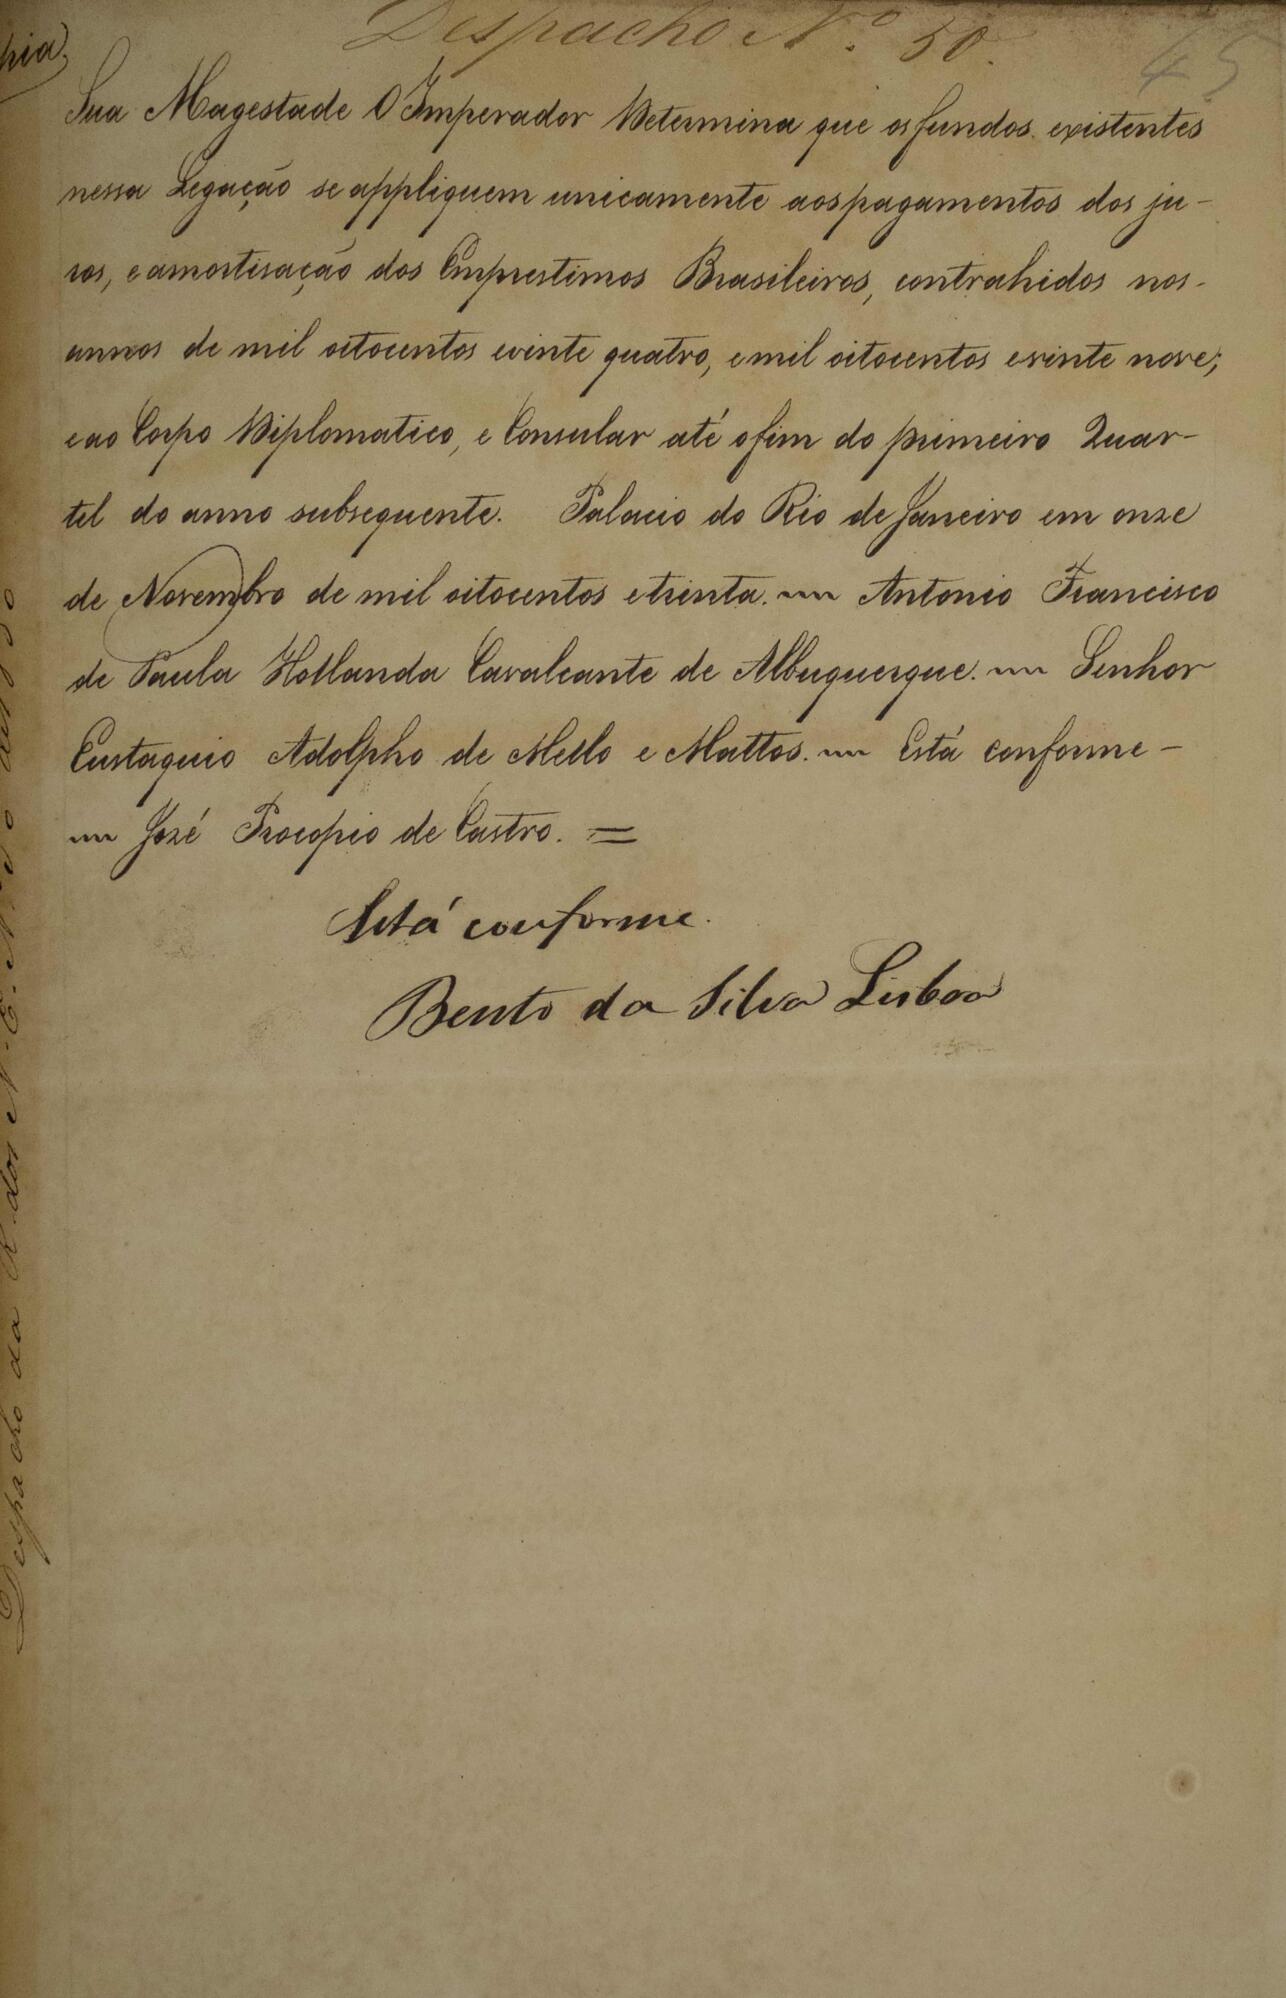 Despacho N.º 50.
45
pia,
Sua Magestade O Imperador Determina que os fundos existentes
nessa Legação se appliquem unicamente aos pagamentos dos ju-
ros, e amortisação dos Emprestimos Brasileiros, contrahidos nos
annos de mil oitocentos e vinte quatro, e mil oitocentos e vinte nove;
e ao Corpo Diplomatico, e Consular até o fim do primeiro Quar-
tel do anno subsequente. Palacio do Rio de Janeiro em onze
de Novembro de mil oitocentos e trinta. Antonio Francisco
de Paula Hollanda Cavalcante de Albuquerque. Senhor
Eustaquio Adolpho de Mello e Mattos. Está conforme-
José Procopio de Castro. =
Está conforme.
Bento da Silva Lisboa
Despacho da R. dos N. E. N.º 50